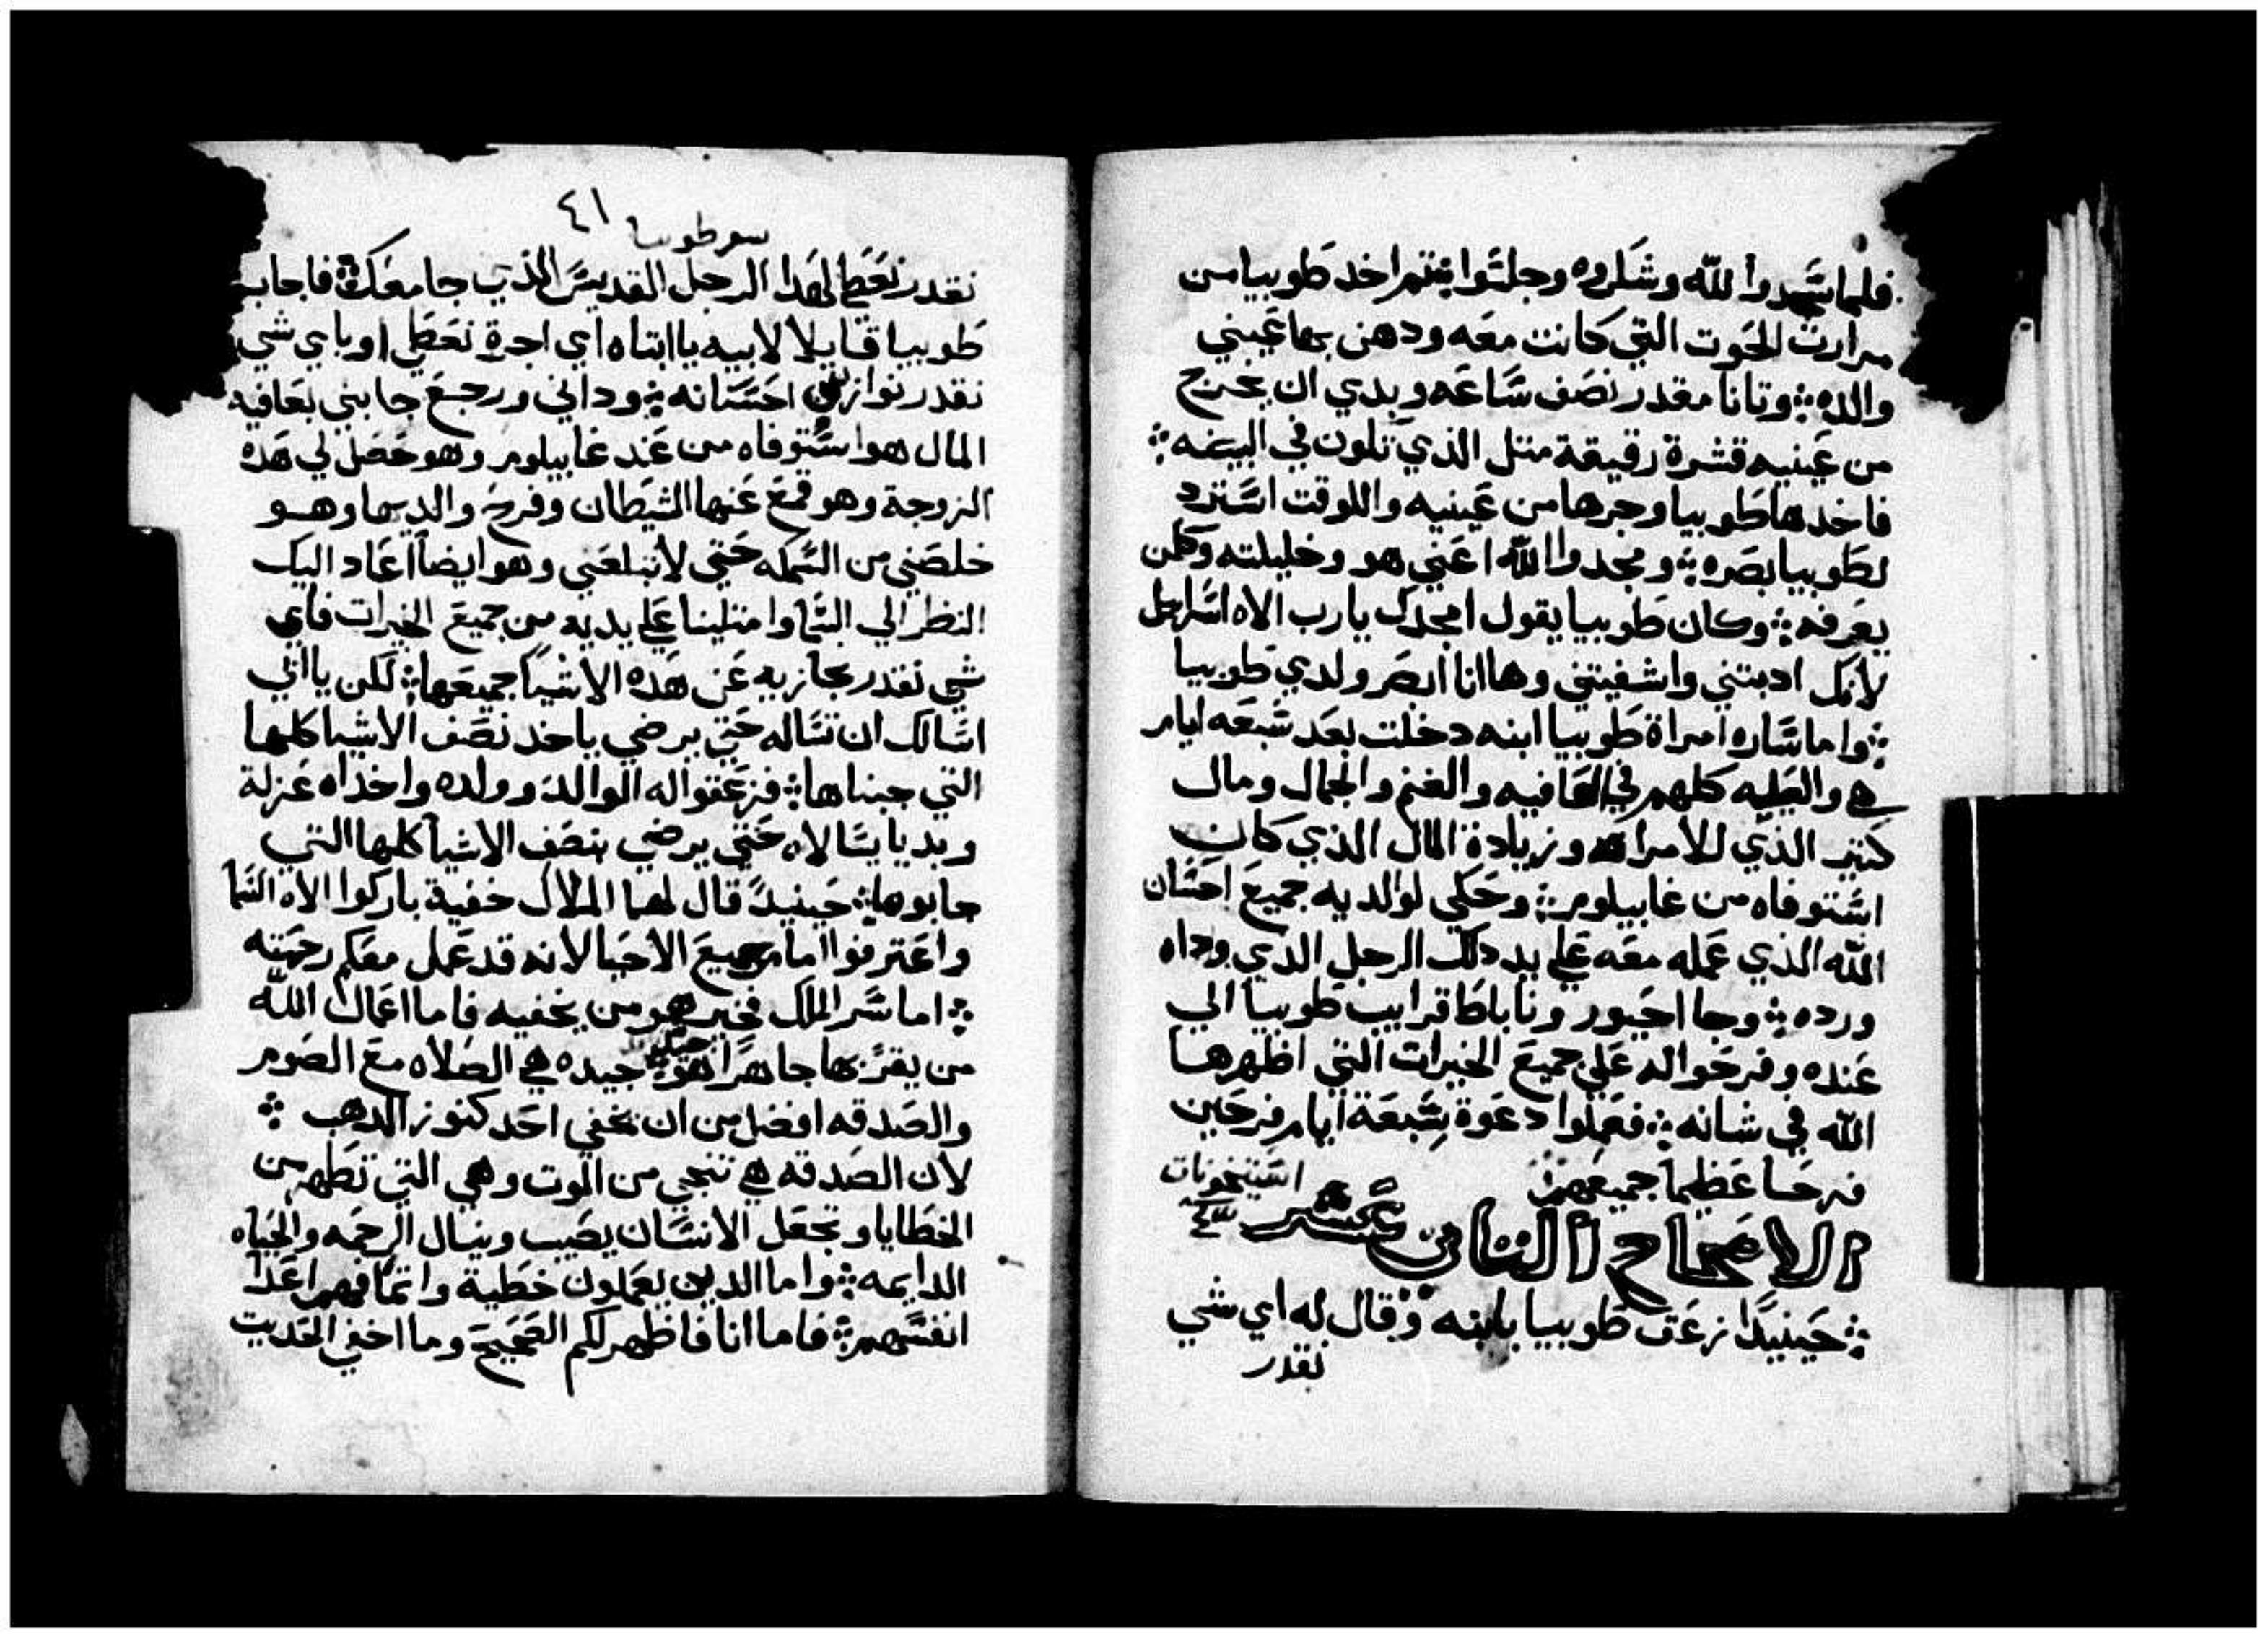 فلما سجدوا لله وشكروه وجلسوا فتم اخد طوبيا من
مرارت الحوت التي كانت معه ودهن بها عيني
والده ܀ وتانا مقدر نصف ساعه وبدي ان يخرج
من عينيه قشرة رقيقة متل الذي تلون في البيضه ܀
فاخدها طوبيا وجرها من عينيه واللوقت استرد
لطوبيا بصره ܀ ومجدوا الله اعني هو وخليلته وكلمن
يعرفه ܀ وكان طوبيا يقول امجدك يارب الاه اسرايل
لانك ادبتني واشفيتني وها انا ابصر ولدي طوبيا
܀ واما ساره امراة طوبيا ابنه دخلت بعد سبعه ايام
هي والعليه كلهم في العافيه والغنم والجمال ومال
كتير الذي للامراه وزيادة المال الذي كان
استوفاه من غابيلوم ܀ وحكي لوالديه جميع احسان
الله الذي عمله معه علي يد دلك الرجل الذي وداه
ورده ܀ وجا احيور وناباط قرايب طوبيا الي
عنده وفرحوا له علي جميع الخيرات التي اظهرها
الله في شانه ܀ فعملوا دعوة سبعة ايام فرحين
فرحا عظيما جميعهم
استيخونات
٤٣
الاصحاح التاني عشر
܀ حينيدا زعق طوبيا بابنه وقال له اي شي
نقدر
سفر طوبيا ٤١
نقدر نعطي لهدا الرجل القديس الذي جا معك ܀ فاجاب
طوبيا قايلا لابيه يا ابتاه اي اجرة نعطي او باي شي
نقدر نوازي احسانه ܀ وداني ورجع جابني بعافيه
المال هو استوفاه من عند غابيلوم وهو حصل لي هده
الزوجة وهو قمع عنها الشيطان وفرح والديها وهو
خلصني من السمكه حتي لا تبلعني وهو ايضا اعاد اليك
النظر الي السما وامتلينا علي يديه من جميع الخيرات فاي
شي نقدر نجازيه عن هده الاشيا جميعها ܀ لكن يا ابي
اسالك ان تساله حتي يرضي ياخد نصف الاشيا كلها
التي جبناها ܀ فزعقوا له الوالد وولده واخداه عزلة
وبديا يسالاه حتي يرضي بنصف الاشيا كلها التي
جابوها ܀ حينيد قال لهما الملاك خفية باركوا الاه السما
واعترفوا امام جميع الاحيا لانه قد عمل معكم رحمته
܀ اما سر الملك فخير هو من يخفيه فاما اعمال الله
من يقر بها جاهرا هو جيده هي الصلاه مع الصوم
والصدقه افضل من ان نخفي احد كنوز الدهب ܀
لان الصدقه هي تنجي من الموت وهي التي تطهر من
الخطايا وتجعل الانسان يصيب وينال الرحمه والحياه
الدايمه ܀ واما الدين يعملون خطية واتما فهم اعدا
انفسهم ܀ فاما انا فاظهر لكم الصحيح وما اخفي الحديت